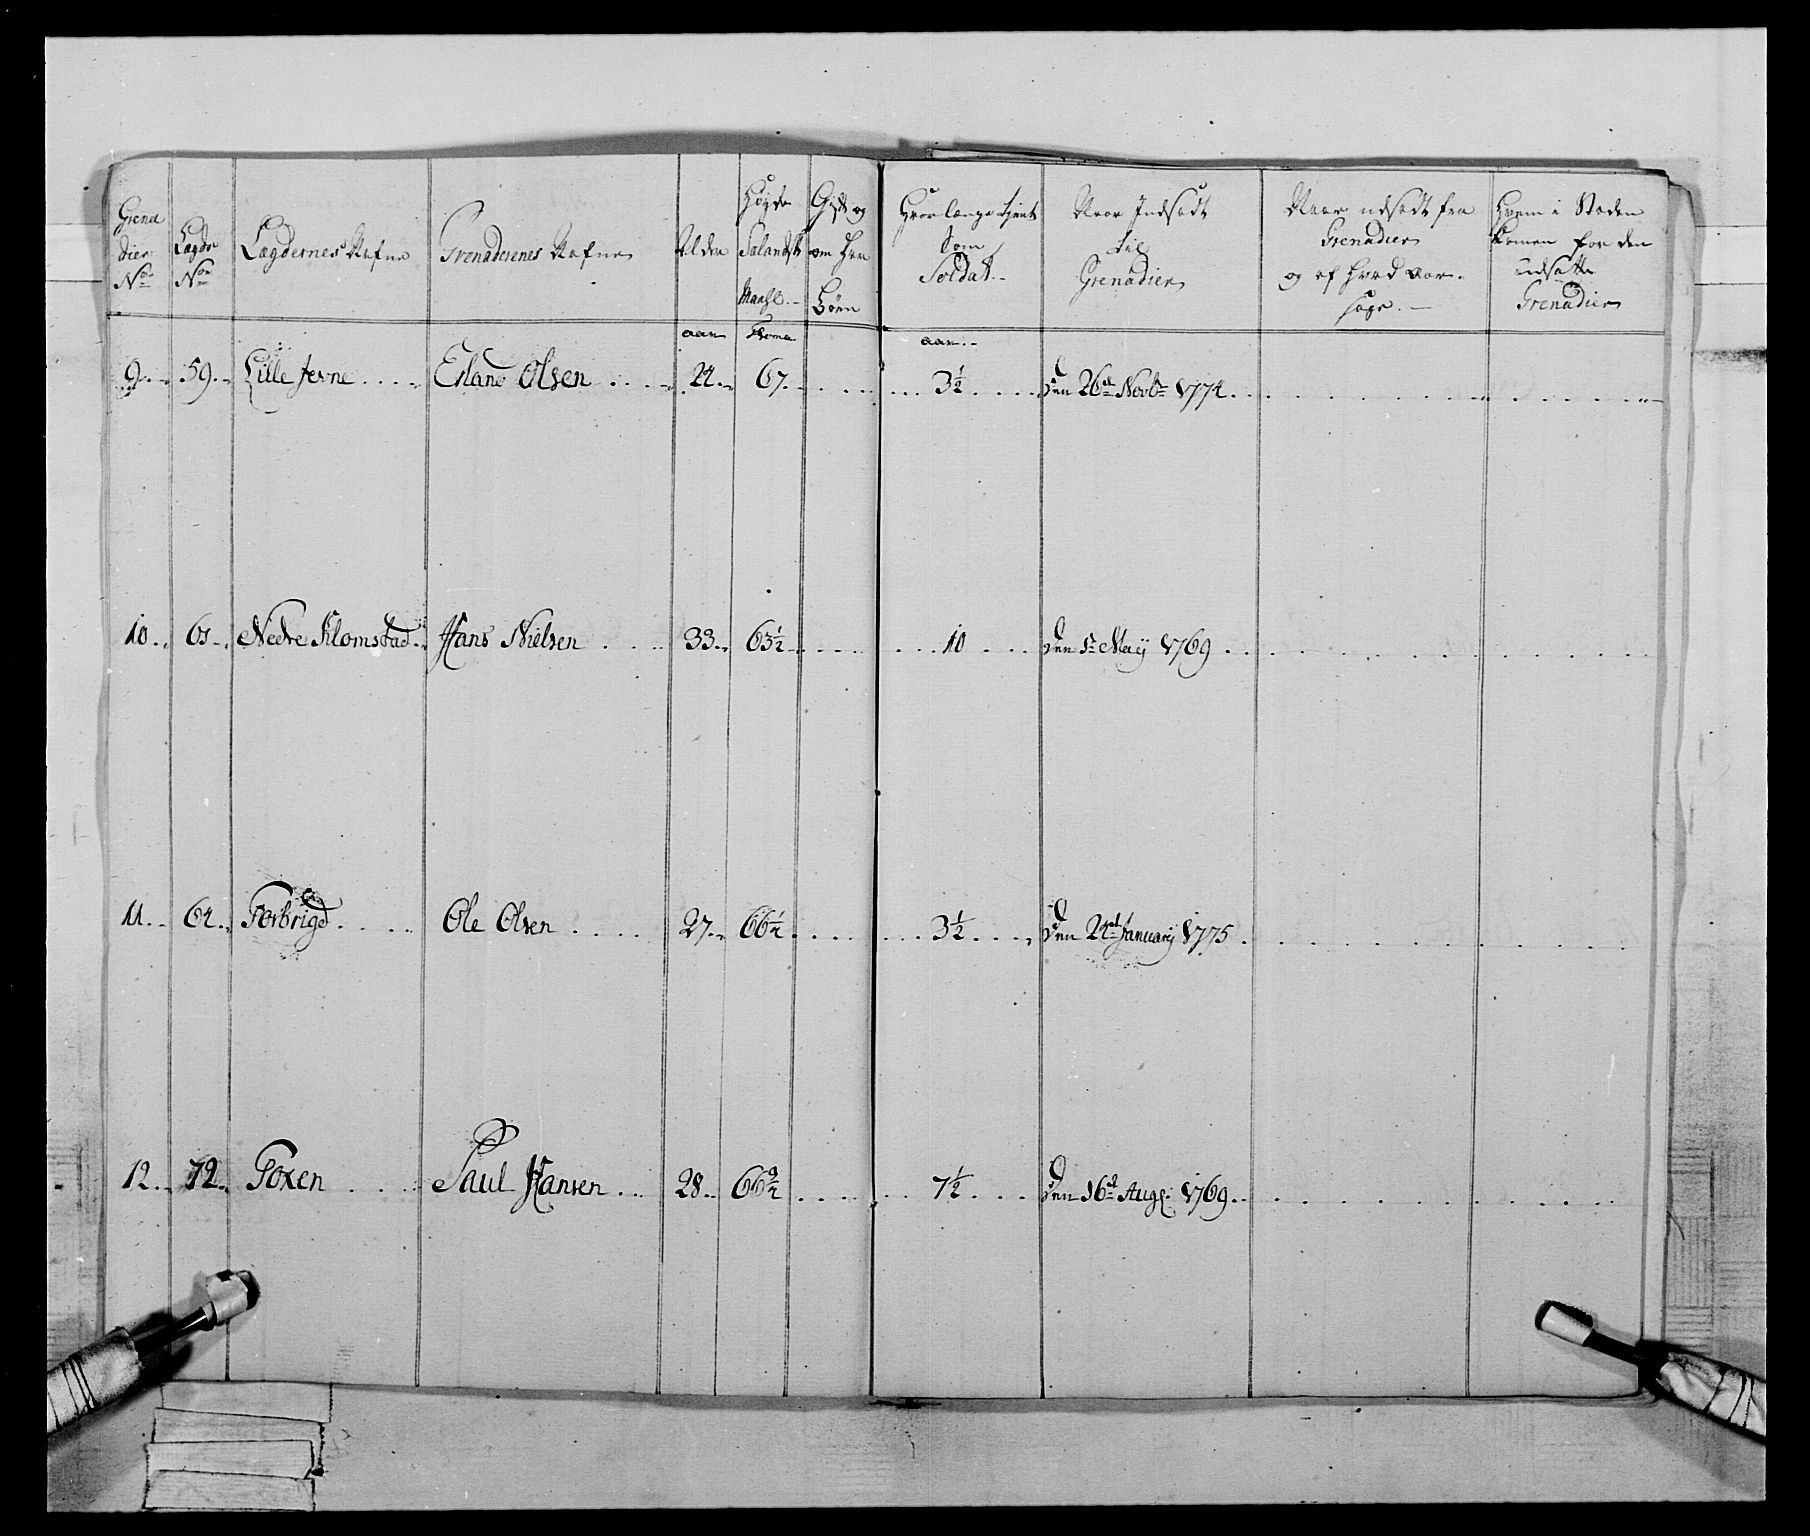 Grena
dier
No
Lægde
No
Lægdernes Nafne
Grenaderenes Nafne
Alder
Høyde
Salandsk
Maahl.
Gift og
om Har
Børn
Hvor længe tient
Som
Soldat.
Naar Indsadt
til
Grenadier
Naar udsadt fra
Grenadier
og af hvad aar-
sage.
Hvem i Staden
komen for den
udsatte
Grenadier
aar Tomme aar
9 59 Lille Jerne Erland Olsen 24 67 3½ Den 26de Novbr 1774
10 61 Nedre Klomstad Hans Nielsen 33 63½ 10 Den 1te Maij 1769
11 64 Forbrigd Ole Olsen 27 66½ 3½ Den 24de Januarij 1775
12 72 Foxen Paul Hansen 28 66 7½ Den 16de Aug. 1769